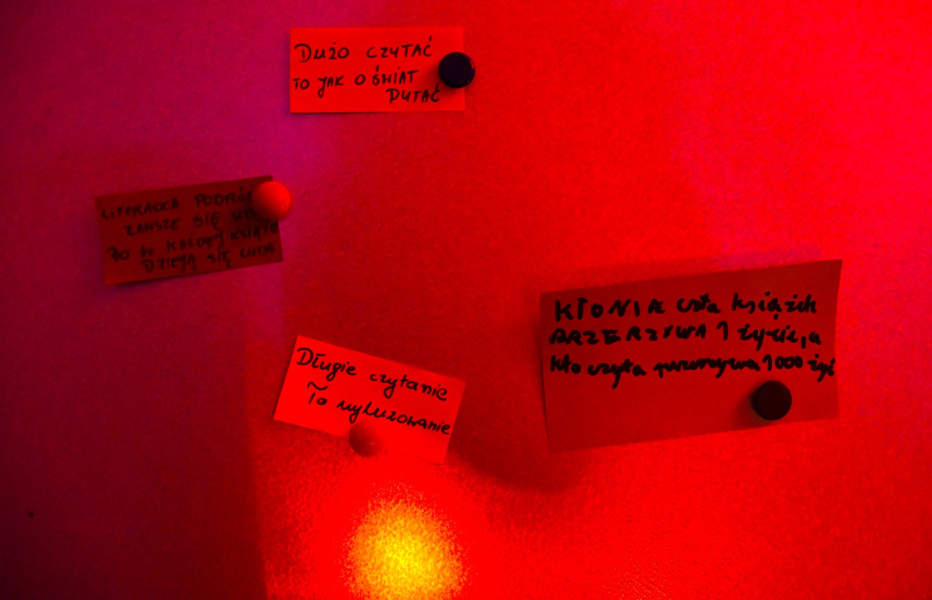 DUŻO CZYTAĆ
TO JAK O ŚWIAT
PYTAĆ
LITERACKA
ZAWSZE SIĘ
BO W KAŻDEJ
DZIEJĄ SIĘ CUDA
Długie czytanie
To wyluzowanie
książek
PRZERZYWA 1 życie, a
kto czyta przerzywa 1000 żyć